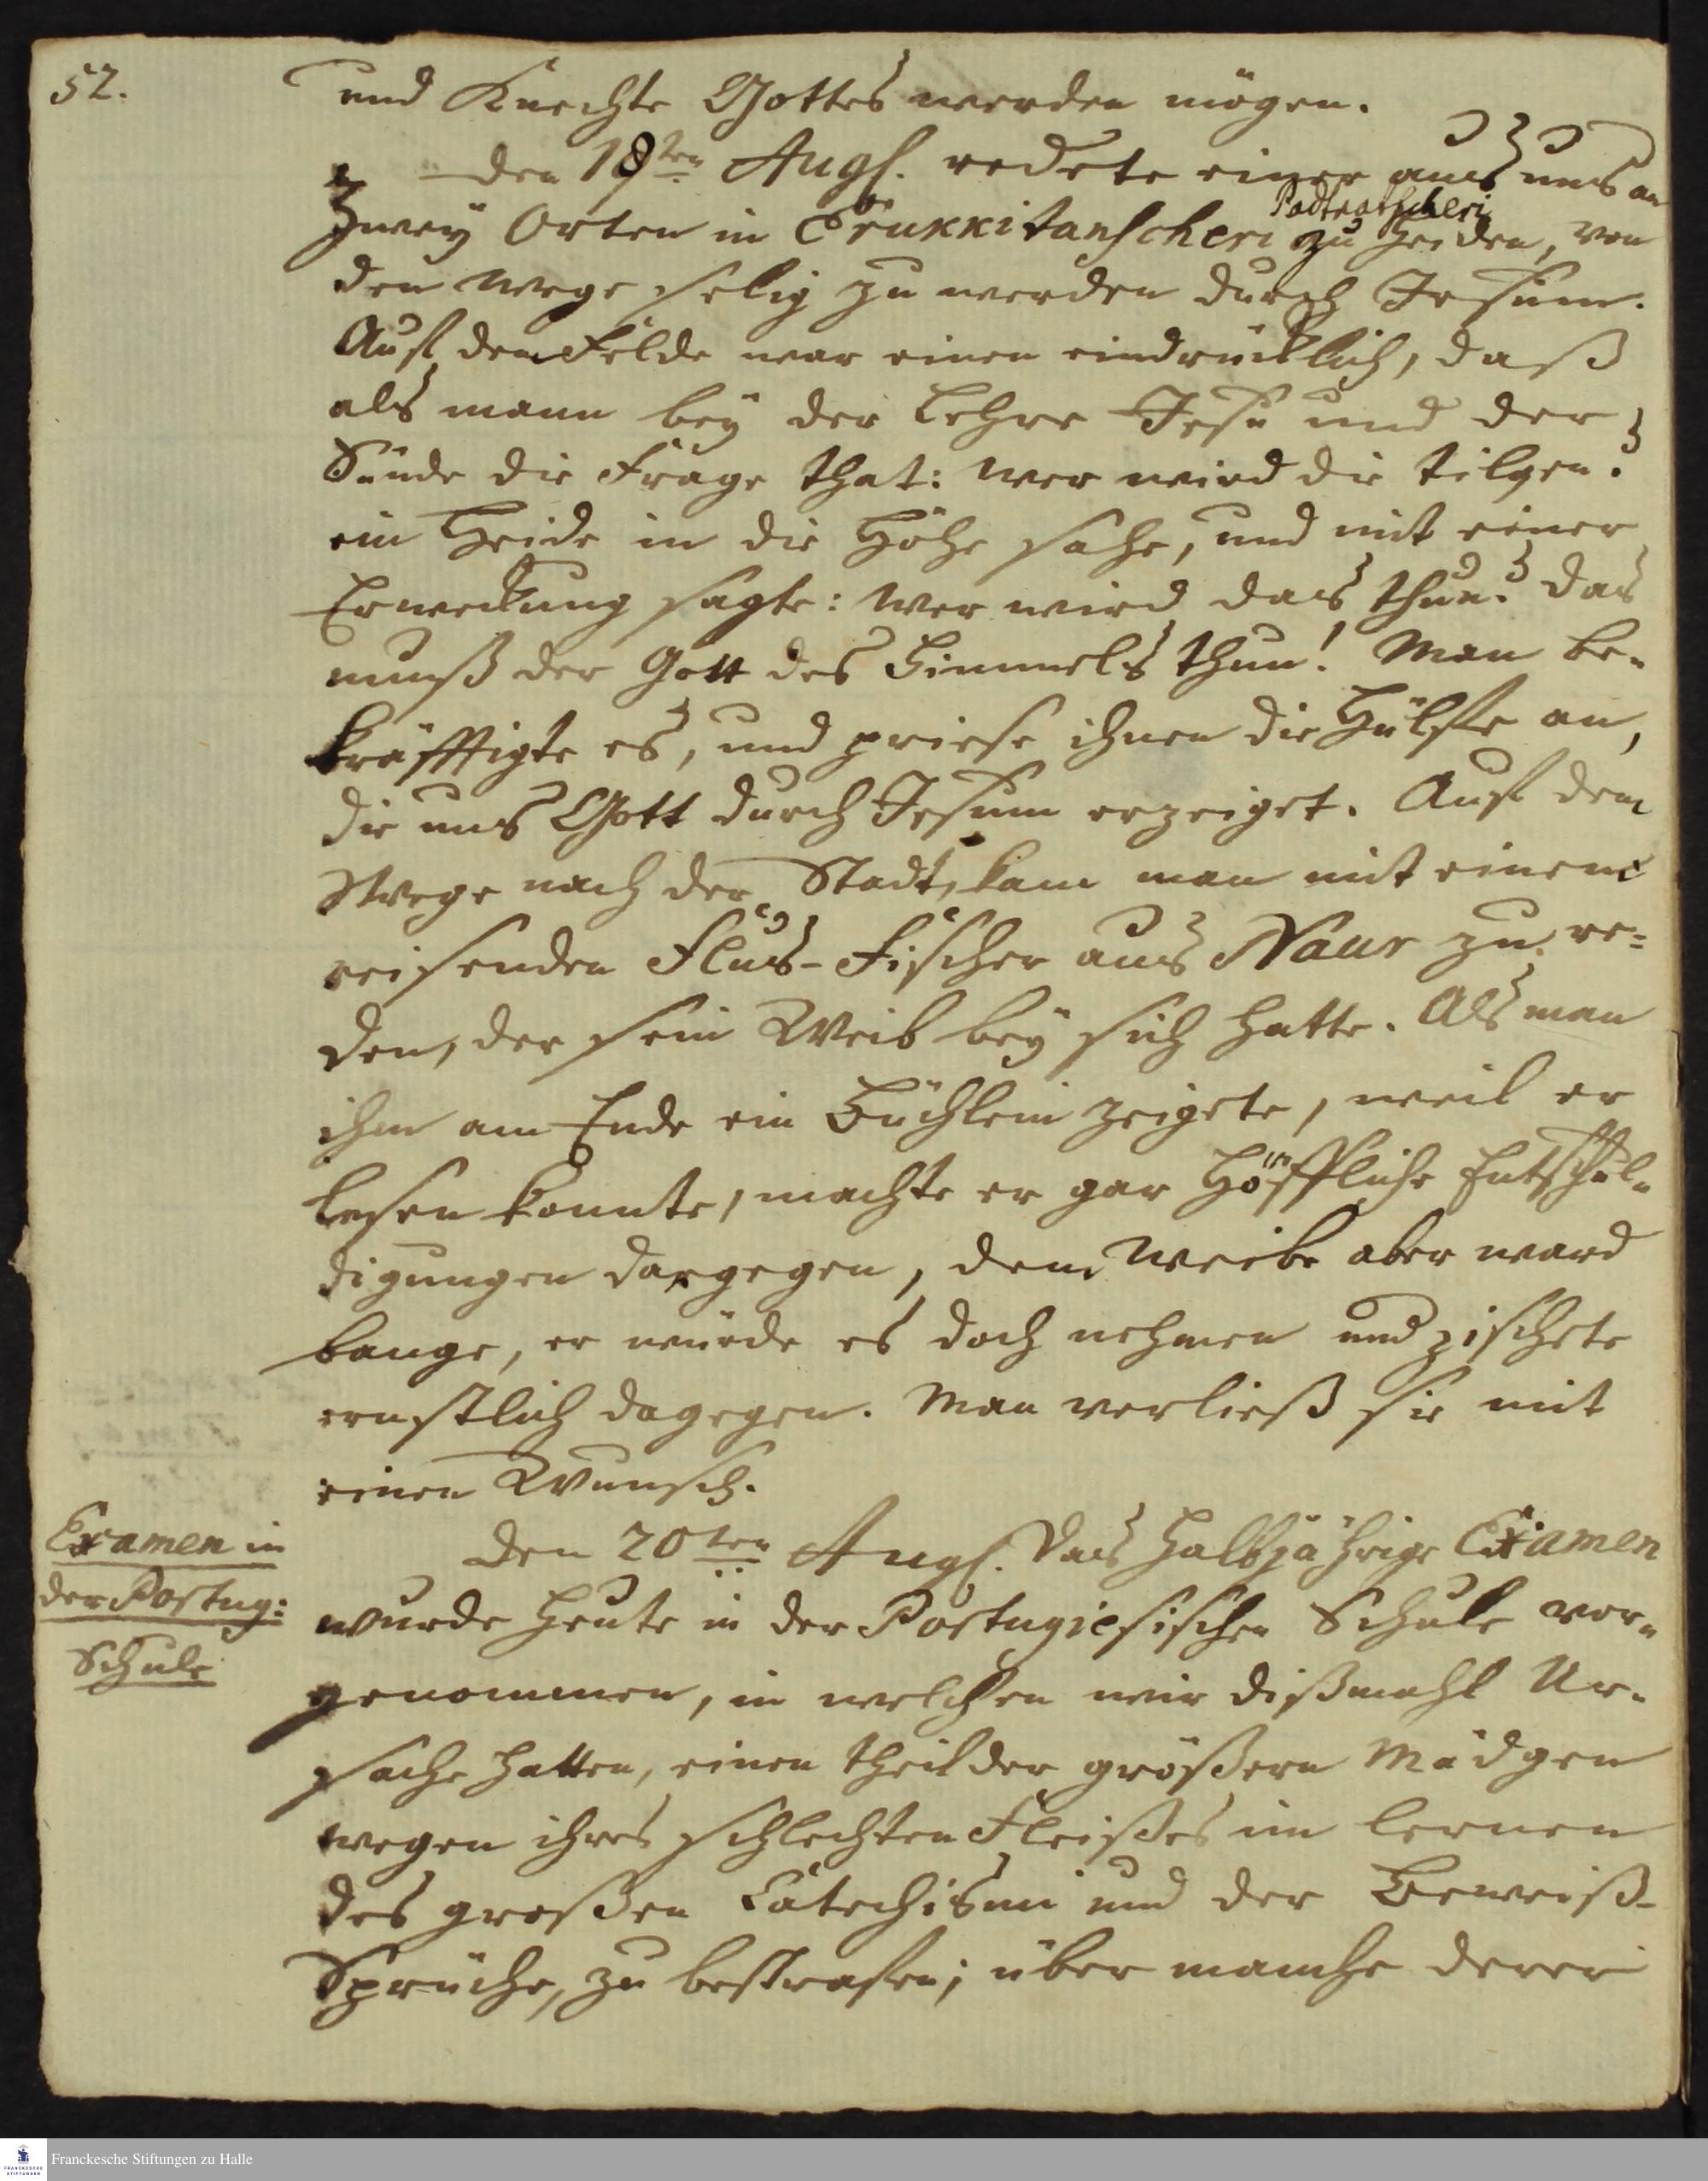 52.
und Knechte Gottes werden mögen.
den 18ten Augs. redete einer aus uns an
Padtratscheri
zwey Orten in Erukkitanscheri zu Heiden, von
den Wege selig zu werden durch Jesum.
Auf dem Felde war einen eindrücklich, daß
als mann bey der Lehre Jesu und der
Sünde die Frage that: wer wird die tilgen?
ein Heide in die Höhe sahe, und mit einer
Erweckung sagte: wer wird das thun? das
muß der Gott des Himmels thun! Man be-
kräfftigte es, und priese ihnen die Hülffe an,
die uns Gott durch Jesum erzeiget. Auf dem
Wege nach der Stadt, kam man mit einem
reisenden Flus-Fischer aus Naur zu re-
den, der sein Weib bey sich hatte. Als man
ihm am Ende ein Büchlein zeigete, weil er
lesen konnte, machte er gar höffliche Entschul-
digungen dargegen, dem Weibe aber ward
bange, er würde es doch nehmen und zischete
ernstlich dagegen. Man verließ sie mit
einen Wunsch.
Examen in
der Portug:
Schule
den 20ten Augs. Das halbjährige Examen
wurde heute in der Portugiesischen Schule vor-
genommen, in welchen wir dißmahl Ur-
sache hatten, einen theil der größern Mädgen
wegen ihres schlechten Fleißes im lernen
des großen Catechismi und der Beweiß-
Sprüche, zu bestrafen; über manche derer